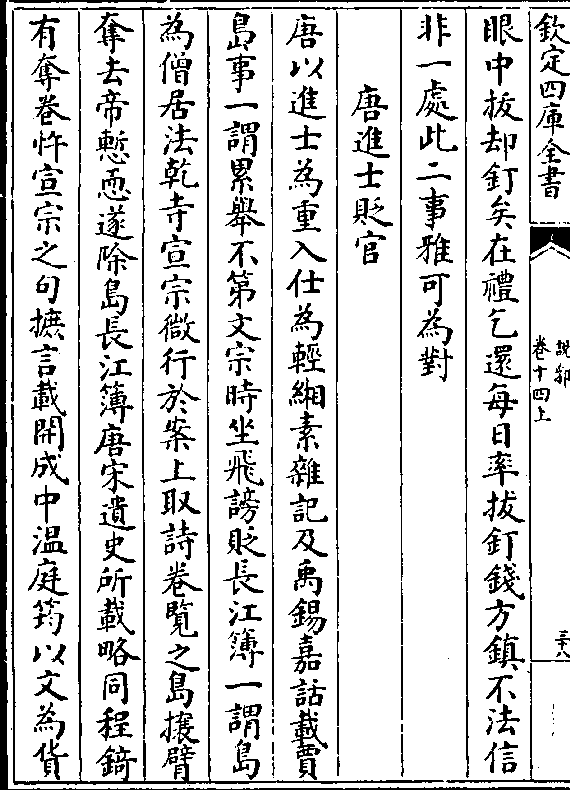 欽定四庫全書
說郛
卷十四上
三十八
眼中拔却釘矣在禮乞還每日率拔釘錢方鎮不法信
非一處此二事雅可為對
唐進士貶官
唐以進士為重入仕為輕緗素雜記及禹錫嘉話載賈
島事一謂累舉不第文宗時坐飛謗貶長江簿一謂島
為僧居法乾寺宣宗微行於案上取詩卷覽之島攘臂
奪去帝慙恧遂除島長江簿唐宋遺史所載略同程錡
有奪卷忤宣宗之句摭言載開成中温庭筠以文為貨